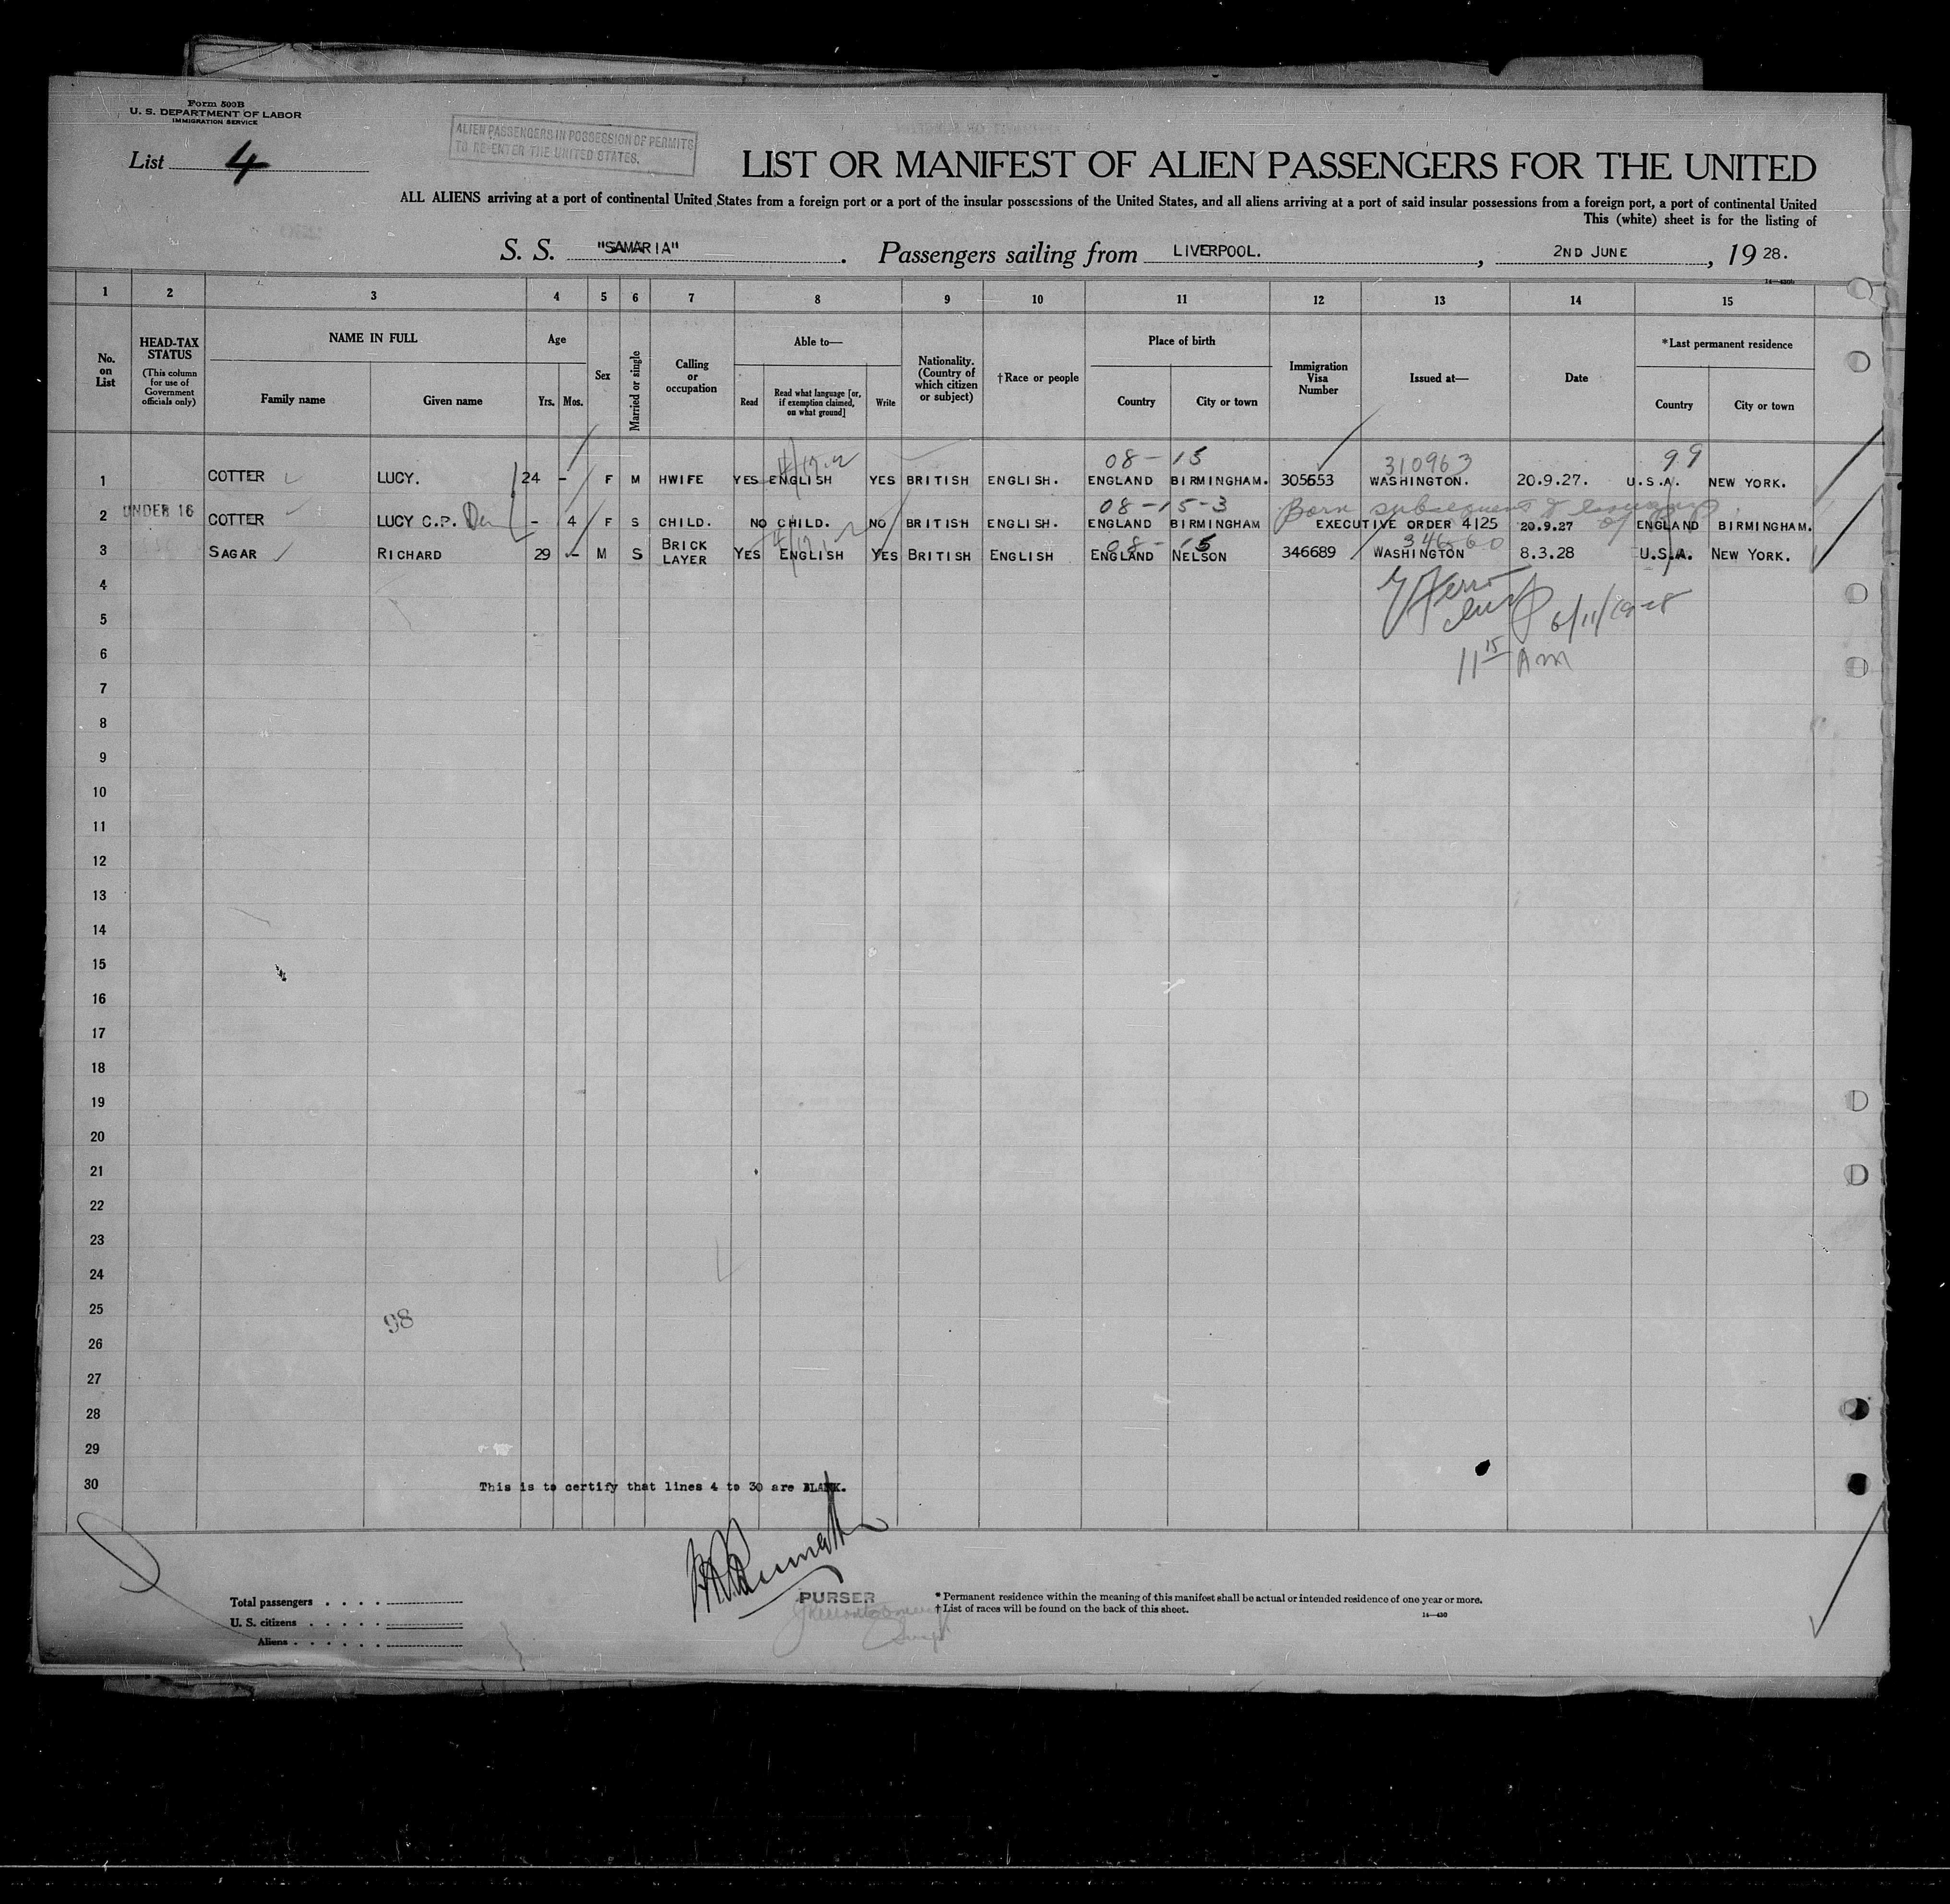 Form 500B
U. S. DEPARTMENT OF LABOR
IMMIGRATION SERVICE
ALIEN PASSENGERS IN POSSESSION OF PERMITS
TO RE-ENTER THE UNITED STATES.
List 4
LIST OR MANIFEST OF ALIEN PASSENGERS FOR THE UNITED
ALL ALIENS arriving at a port of continental United States from a foreign port or a port of the insular possessions of the United States, and all aliens arriving at a port of said insular possessions from a foreign port, a port of continental United
This (white) sheet is for the listing of
S. S. "SAMARIA". Passengers sailing from LIVERPOOL. , 2ND JUNE , 19 28.
14—430b
1 2 3 4 5 6 7 8 9 10 11 12 13 14 15
No. on List
HEAD-TAX STATUS
(This column for use of Government officials only)
NAME IN FULL
Family name Given name
Age
Yrs. Mos.
Sex
Married or single
Calling or occupation
Able to—
Read
Read what language [or, if exemption claimed, on what ground]
Write
Nationality. (Country of which citizen or subject)
†Race or people
Place of birth
Country City or town
Immigration Visa Number
Issued at—
Date
*Last permanent residence
Country City or town
08-15 310963 99
1 COTTER LUCY. 24 - F M HWIFE YES ENGLISH YES BRITISH ENGLISH. ENGLAND BIRMINGHAM. 305653 WASHINGTON. 20.9.27. U.S.A. NEW YORK.
08-15-3 Born subsequent to issuance of
2 UNDER 16 COTTER LUCY C.P. - 4 F S CHILD. NO CHILD. NO BRITISH ENGLISH. ENGLAND BIRMINGHAM EXECUTIVE ORDER 4125 20.9.27 ENGLAND BIRMINGHAM.
08-15
3 SAGAR RICHARD 29 - M S BRICK LAYER YES ENGLISH YES BRITISH ENGLISH ENGLAND NELSON 346689 WASHINGTON 8.3.28 U.S.A. NEW YORK.
4
5 6/11/1928
6 11 15 AM
7
8
9
10
11
12
13
14
15
16
17
18
19
20
21
22
23
24
25
98
26
27
28
29
30 This is to certify that lines 4 to 30 are BLANK.
PURSER
Total passengers . . . .
U. S. citizens . . . . .
Aliens . . . . . .
* Permanent residence within the meaning of this manifest shall be actual or intended residence of one year or more.
† List of races will be found on the back of this sheet.
14—430